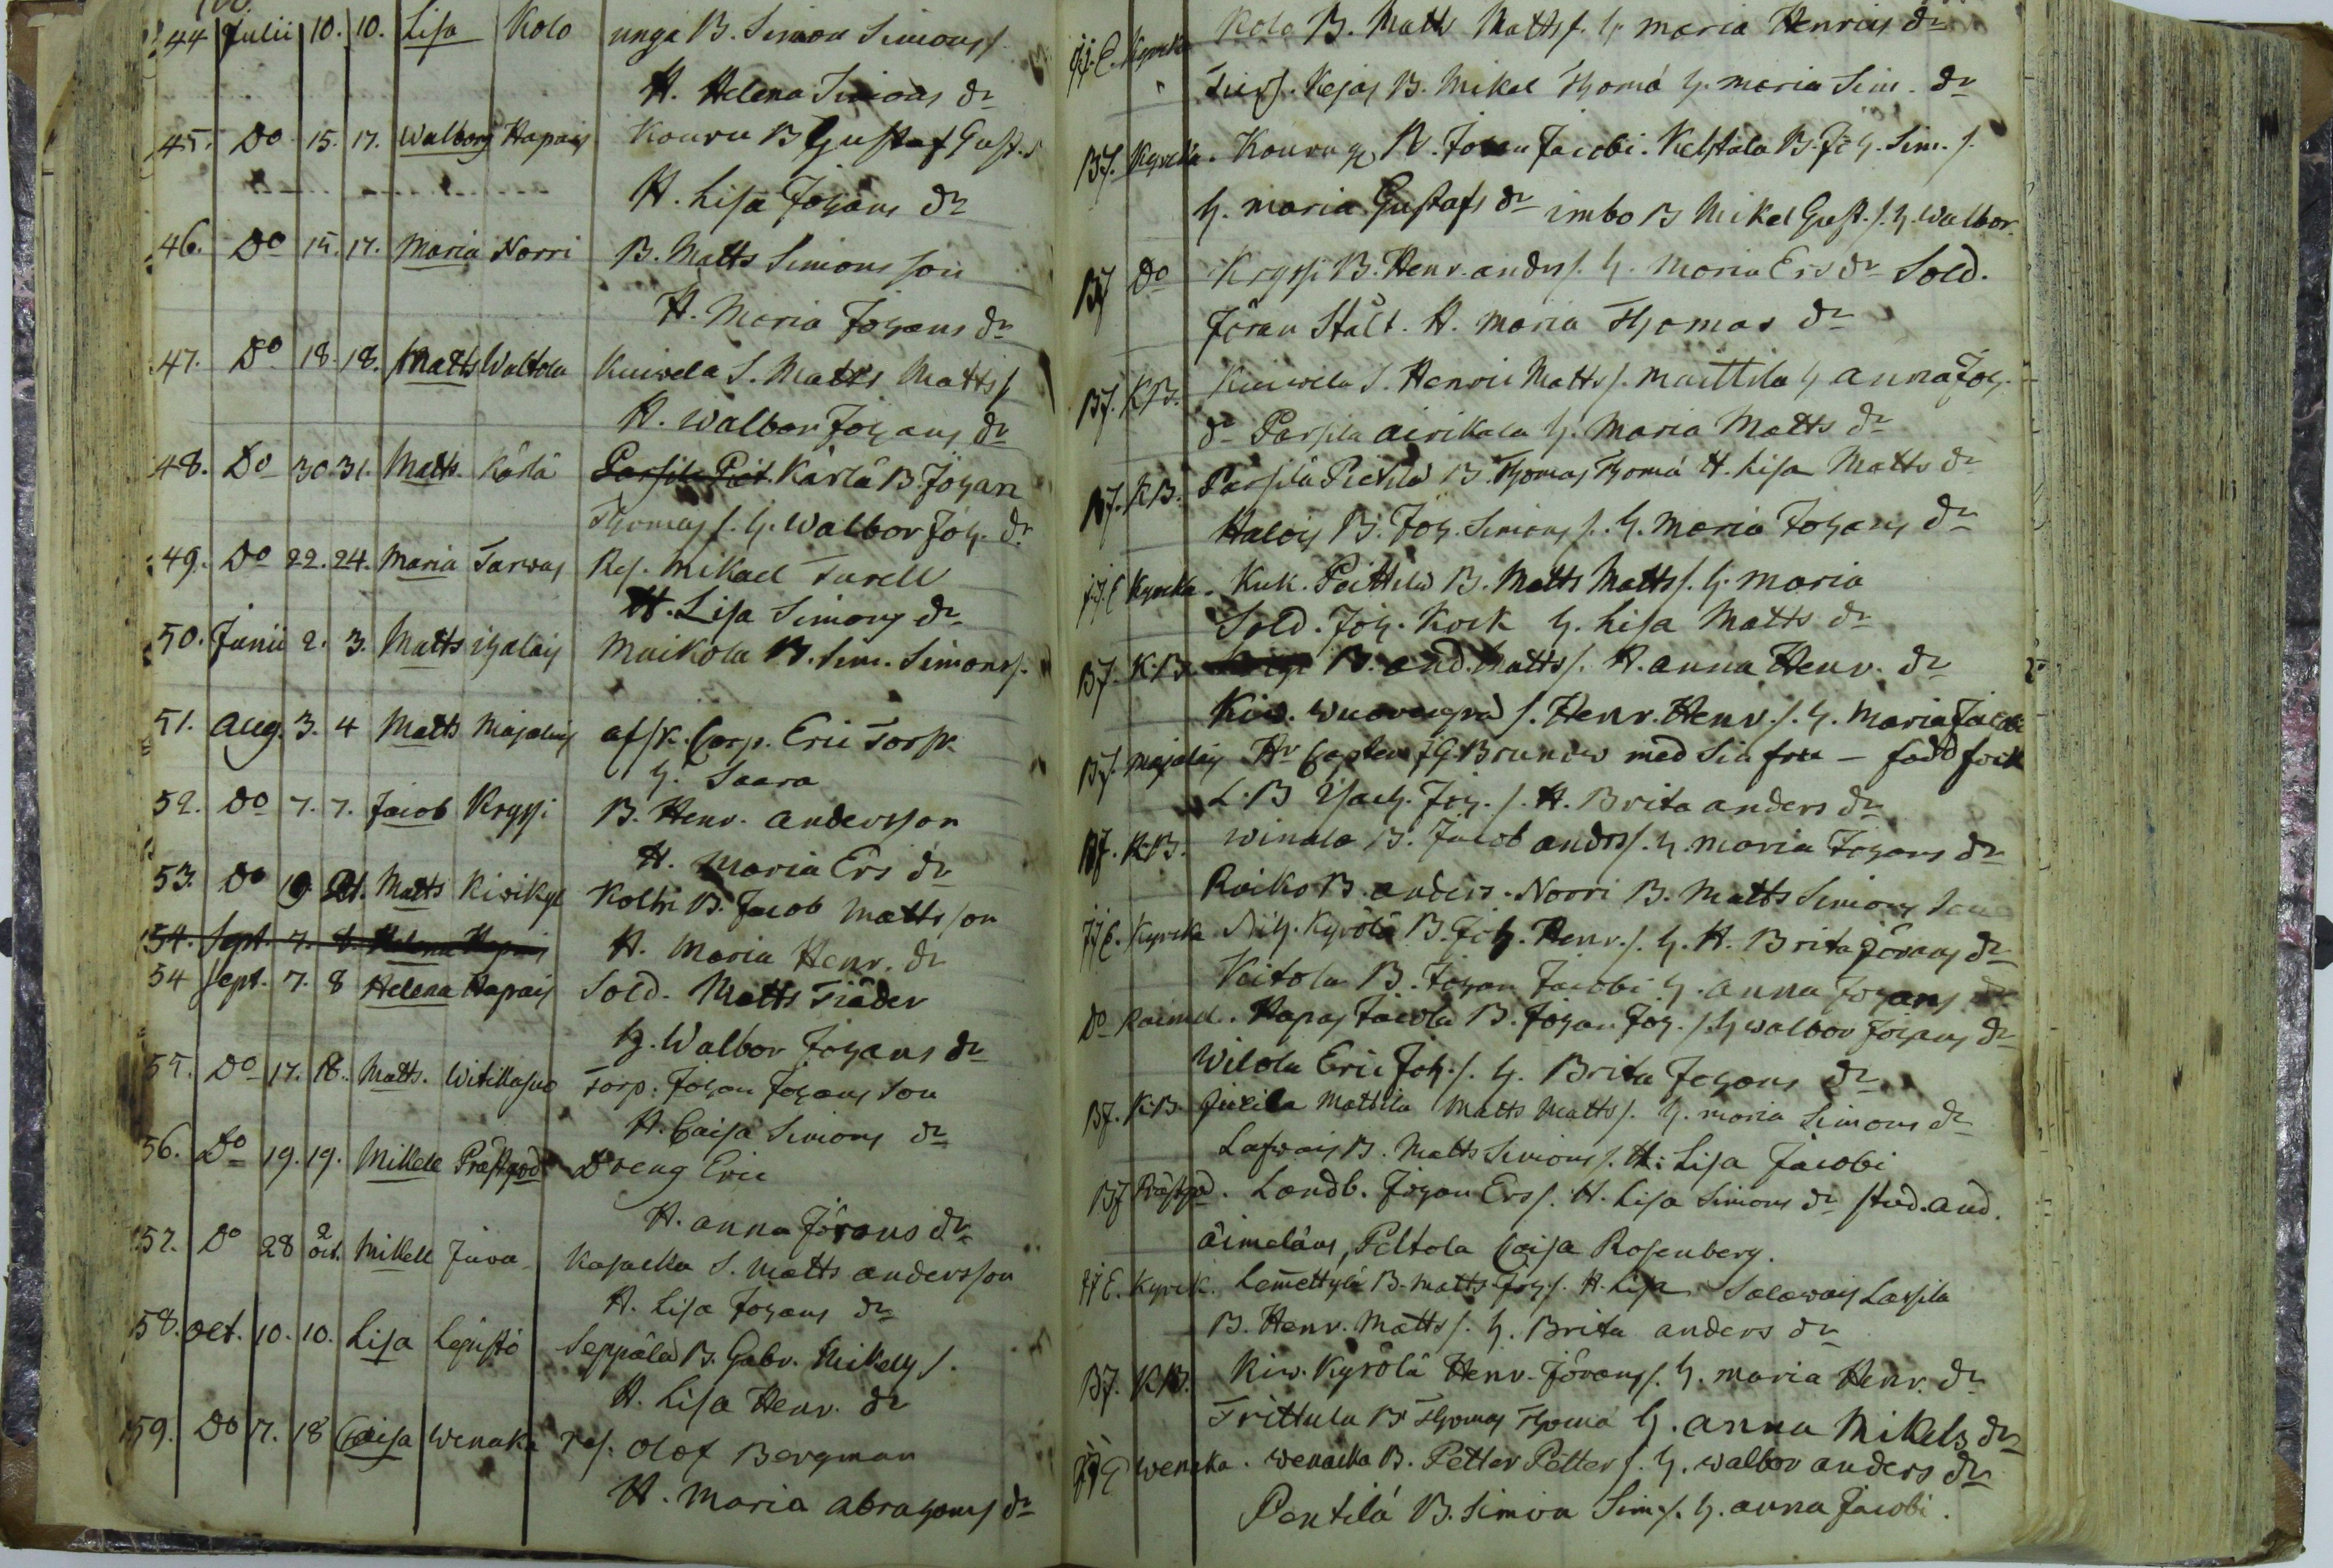 44 Julii 10. 10. Lisa Kolo unga B. Simon Simonss.
H. Helena Simons dr
45. Do 15. 17. Walborg Hapais Kouru B Gustaf Gust. s
H. Lisa Johans dr
46. Do 15. 17. Maria Norri B. Matts Simons son
H. Maria Johans dr
47. Do 18. 18. Matts Waltola Kuiwela S. Matts Matts s
H. Walbor Johans dr
48. Do 30. 31. Matts Kärlä Kärlä B. Johan
Thomas s. h. Walbor Joh. dr
49. Do 22. 24. Maria Tarwas Res. Mikael Turell
H. Lisa Simons dr
50. Junii 2. 3. Matts Maikola B. Sim. Simonss.
51. Aug. 3. 4 Matts Majalais afsk. Corp. Eric Torsk
h. Saara
52. Do 7. 7. Jacob Kryssi B. Henr. Andersson
H. Maria Ers dr
53. Do 19. 21. Matts Kiwikyl Kolhi B. Jacob Mattsson
54. Sept. 7. 8. Helena Hapais H. Maria Henr. dr
54 Sept. 7. 8 Helena Hapais Sold. Matts Fiäder
h. Walbor Johans dr
55. Do 17. 18. Matts. Witikasuo Torp. Johan Johans son
H. Caisa Simons dr
56. Do 19. 19. Mikell Prästgrd Dreng Eric
H. Anna Jörans dr
57. Do 28 2 Oct. Mikell Juva Kasacka S. Matts Andersson
H. Lisa Johans dr
58. Oct. 10. 10. Lisa Lepistö Seppälä B. Gabr. Mikels s.
H. Lisa Henr. dr
59. Do 17. 18 Caisa Wenaka Res. Olof Bergman
H. Maria Abrahams dr
Kyrcka Kolo B. Matts Matts s. h. Maria Henrics dr
B. Mikel Thomä h. Maria Sim. dr
BJ. Kyrcka. Kouru B. Johan Jacobi. Keltala B. Joh. Sim. s.
h. Maria Gustafs dr imbo B Mikel Gust. s. h. Walbor.
BJ Do Kryssi B. Henr. Anders s. h. Maria Ers dr Sold.
Jöran Stålt. H. Maria Thomas dr
BJ. K.B. Kuiwela S. Henric Matts s. Maittila h Anna Joh.
dr Parsila Airikala h. Maria Matts dr
BJ. K.B. Parsila Pietilä B. Thomas Thomä H. Lisa Matts dr
Halois B. Joh. Simons s. h. Maria Johans dr
Kyrcka. Kuk. Peittilä B. Matts Matts s. h. Maria
Sold. Joh. Kock h. Lisa Matts dr
BJ. K.B. B. And. Matts s. H. Anna Henr. dr
Kiw. s. Henr. Henr. s. h. Maria Jacobi
BJ. Majalais Hr Caplan JG Brunow med Sin fru
L.B Isach. Joh. s. H. Brita Anders dr
BJ. K.B. Winala B. Jacob Anders s. h. Maria Johans dr
Raiko B. Anders. Norri B. Matts Simons son
Kyrcka Nih. Kyrölä B. Joh. Henr. s. h. H. Brita Jörans dr
Keitola B. Johan Jacobi h. Anna Johans dr
Do Hapas Jacola B. Johan Joh. s. h Walbor Johans dr
Wilola Eric Joh. s. h. Brita Johans dr
BJ. K.B. Mattila Matts Matts s. h. Maria Simons dr
B. Matts Simons s. H: Lisa Jacobi
BJ Prästgrd. Landb. Johan Ers s. H. Lisa Simons dr Stud. And.
Äimeläus, Peltola Caisa Rosenberg.
Kyrck. Lemettylä B. Matts Joh. s. H. Lisa Salawais Lassila
B. Henr. Matts s. h. Brita Anders dr
BJ. K.B. Kiw. Kyrölä Henr. Jörans s. h. Maria Henr. dr
Frittula B Thomas Thomä h. Anna Mikels dr
Wenaka. Wenacka B. Petter Petter s. h. Walbor Anders dr
Pentilä B. Simon Sim. s. h. Anna Jacobi.